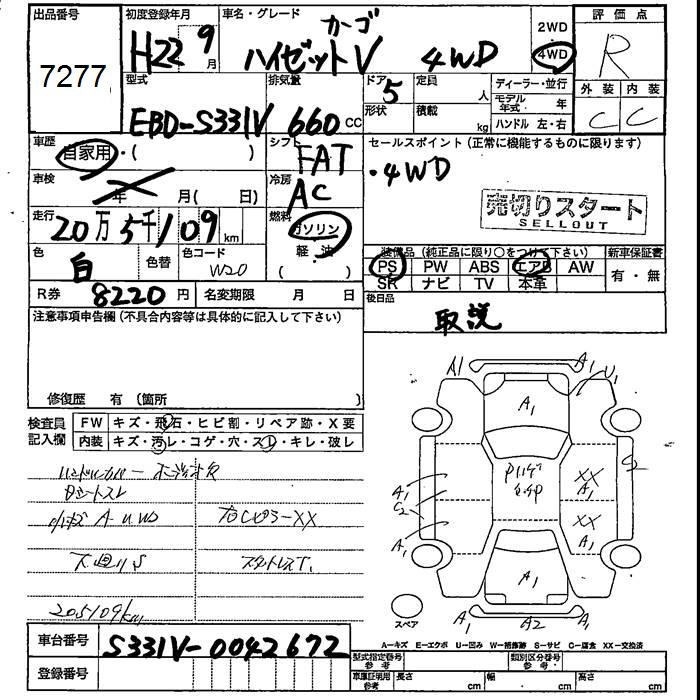 出品番号
7277
初度登録年月
H22 9月
車名・グレード
ハイゼットカーゴ 4WD
2WD
4WD
評価点
R
外装 内装
C C
型式
EBD-S331V
排気量
660 CC
ドア 5
形状
定員 人
積載 kg
ディーラー・並行
モデル年式 年
ハンドル 左・右
車歴
自家用・( )
シフト
FAT
セールスポイント (正常に機能するものに限ります)
・4WD
売切りスタート
SELLOUT
車検
年 月( 日)
冷房
AC
走行
20万5千109km
燃料
ガソリン
軽油
( )
色
白
色替
色コード
W20
装備品 (純正品に限り○をつけて下さい)
PS PW ABS エアB AW
SR ナビ TV 本革
新車保証書
有・無
R券 8220円
名変期限 月 日
後日品
取説
注意事項申告欄 (不具合内容等は具体的に記入して下さい)
修復歴 有 (箇所 )
検査員記入欄
FW キズ・飛石・ヒビ割・リペア跡・X要
内装 キズ・汚レ・コゲ・穴・スレ・キレ・破レ
小キズ A U W D
右Cピラー XX
下廻り S
スタットレスT.
205109km
A1 A1 U1
A1
XX
A1
XX
A1
A1
C2
A1
C2
A1
A1 A2 A1
スペア
A-キズ E-エクボ U-凹み W-補修跡 S-サビ C-腐食 XX-交換済
車台番号 S331V-0042672
登録番号
型式指定番号 参考
類別区分番号 参考
車庫証明用 参考
長さ cm
幅 cm
高さ cm